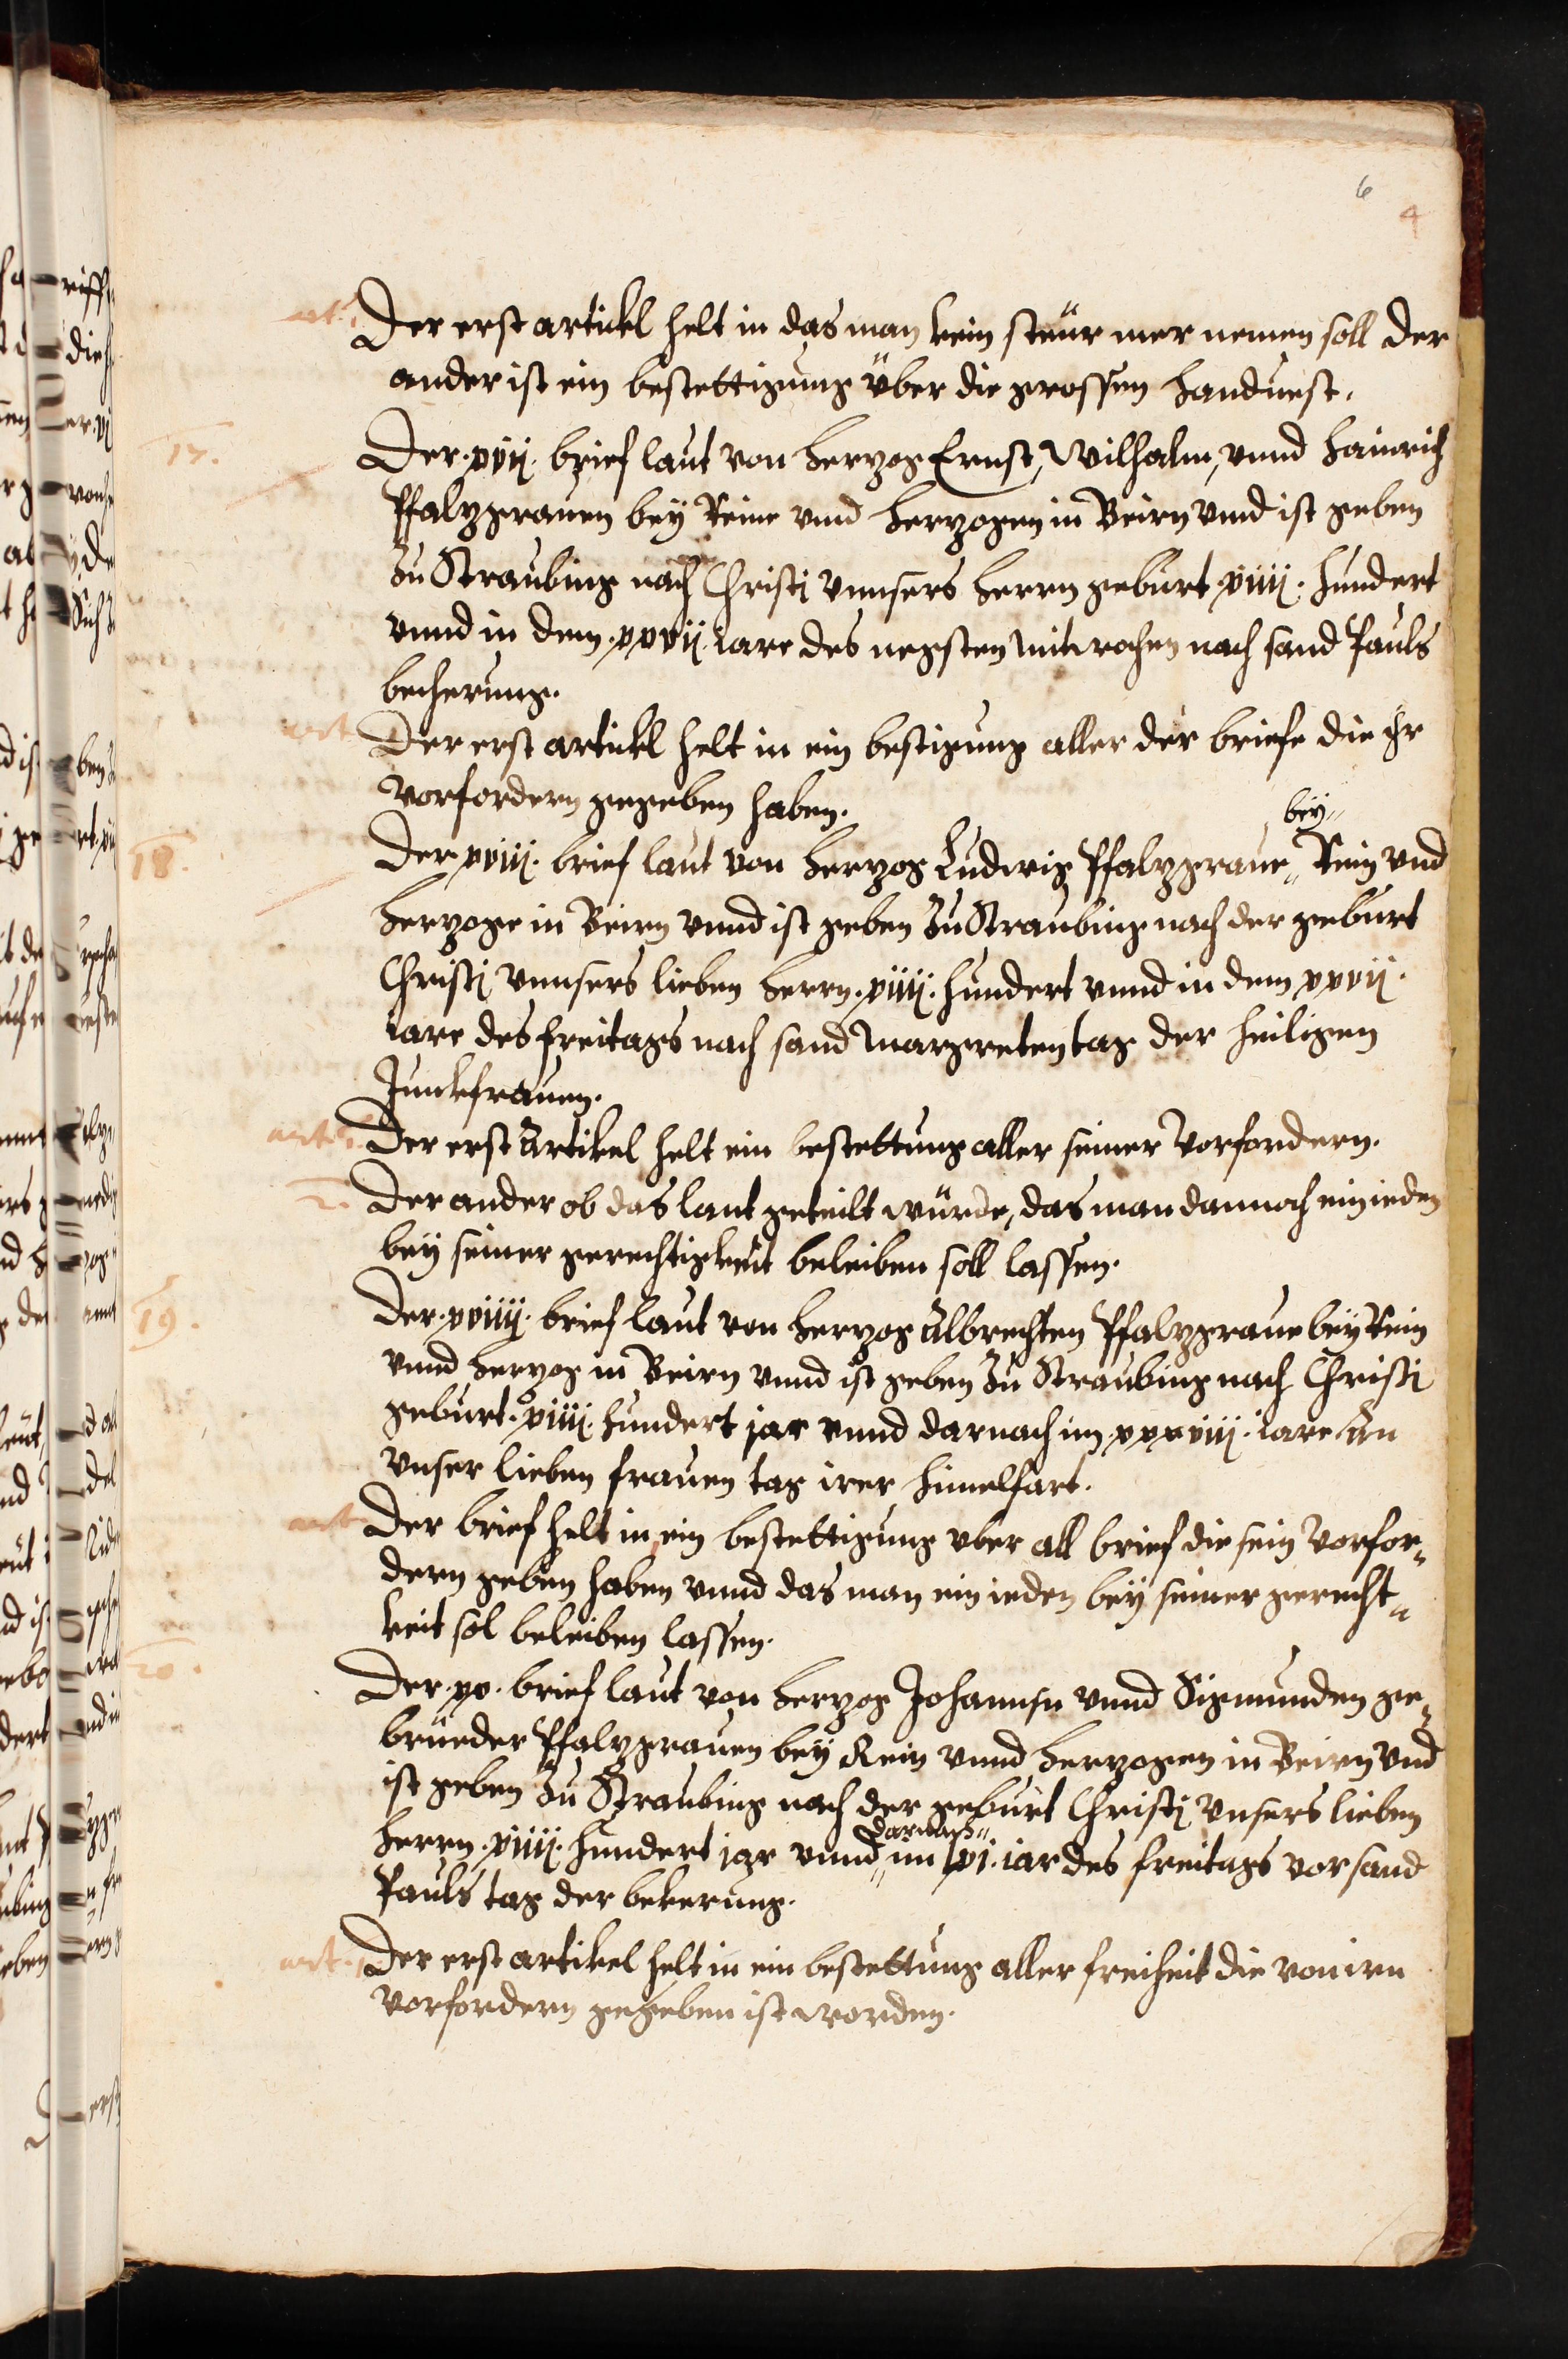 6
4
art. 1 Der erst artickl helt in das man kein steur mer nemen soll der
ander ist ein bestettigung über die grossen Handuest.
17. Der .xvij. brief laut von Herzog Ernst, Wilhalm, vnnd Hainrich
Pfalzgrauen bey Reine vnnd Herzogen in Beirn vnnd ist geben
zu Straubing nach Christi vnnsers Herrn geburt .xiiij. hundert
vnnd in dem .xxvij. iare des negsten mitwochen nach sand Pauls
becherung.
art. Der erst artickl helt in ein bestigung aller der briefe die ihr
vorfordern gegeben haben.
bey
18. Der .xviij. brief laut von Herzog Ludwig Pfalzgraue Rein vnd
Herzoge in Beirn vnnd ist geben zu Straubing nach der geburt
Christi vnnsers lieben Herrn .xiiij. hundert vnnd in dem xxvij.
iare des freitags nach sand Margreten tag der heiligen
Junckfrauen.
art. 1. Der erst Artikel helt ein bestettung aller seiner vorfordern.
2. Der ander ob das lant geteilt würde, das man dannoch ein ieden
bey seiner gerechtigkeit beleiben soll lassen.
19. Der .xviiij. brief laut von Herzog Albrechten Pfalzgraue bey Rein
vnnd Herzog in Beirn vnnd ist geben zu Straubing nach Christi
geburt .xiiij. hundert jar vnnd darnach im .xxxviij. iare An
vnser lieben frauen tag irer himelfart.
art. Der brief helt in ein bestettigung vber all brief die sein vorfor„
dern geben haben vnnd das man ein ieden bey seiner gerecht„
keit sol beleiben lassen.
20. Der .xx. brief laut von Herzog Johannsn vnnd Sigmunden ge„
brueder Pfalzgrauen bey Rein vnnd Herzogen in Beirn vnd
ist geben zu Straubing nach der geburt Christi vnsers lieben
darnach
Herrn .xiiij. hundert jar vnnd im lxj. iar des freitags vor sand
Pauls tag der bekerung.
art. 1 Der erst artikel helt in ein bestettung aller freiheit die von irn
vorfordern gegeben ist worden.